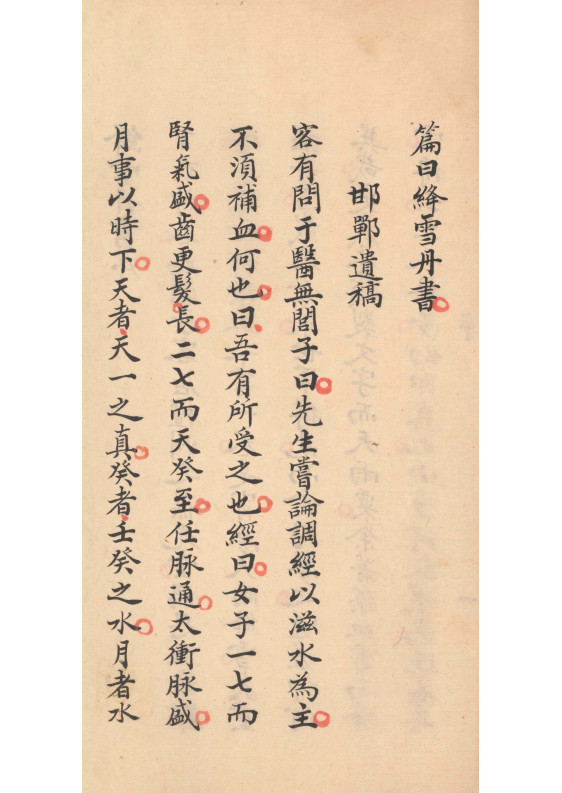 篇曰絳雪丹書
邯鄲遺稿
客有問于醫無閭子曰先生嘗論調經以滋水為主
不須補血何也曰吾有所受之也經曰女子一七而
腎氣盛齒更髮長二七而天癸至任脉通太衝脉盛
月事以時下天者天一之真癸者壬癸之水月者水